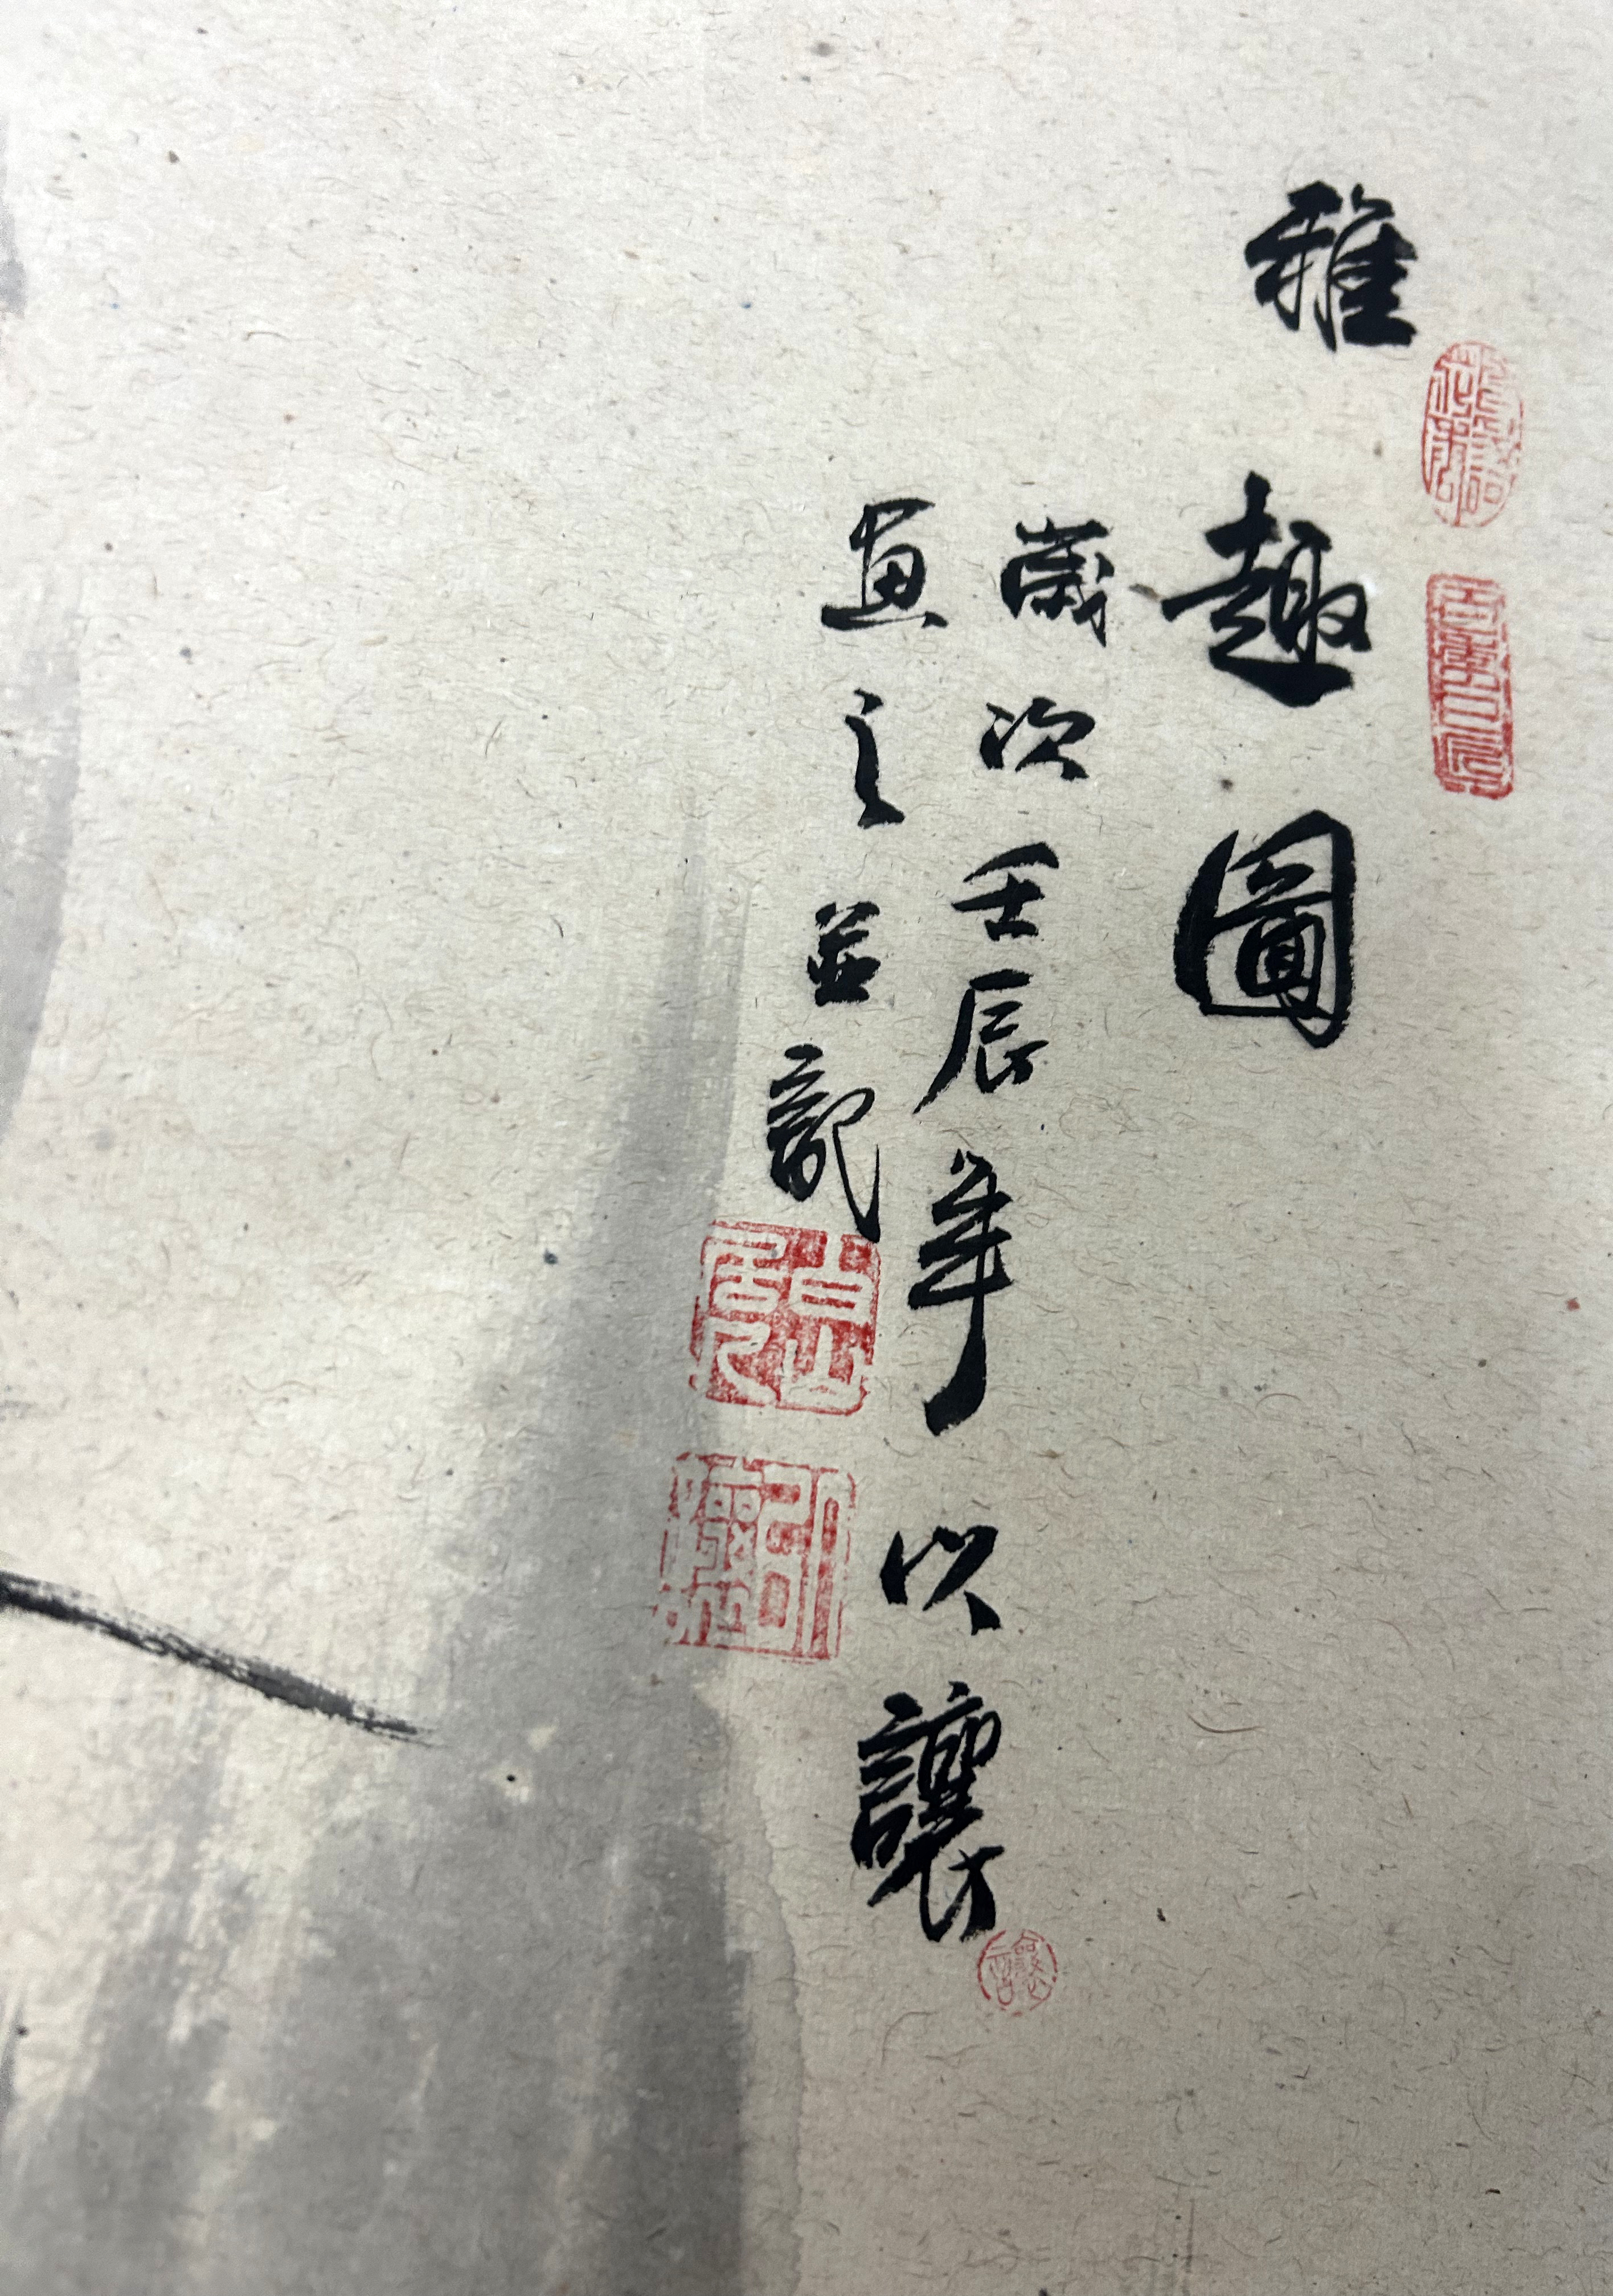 雅趣圖
歲次壬辰年以讓
畫之並記